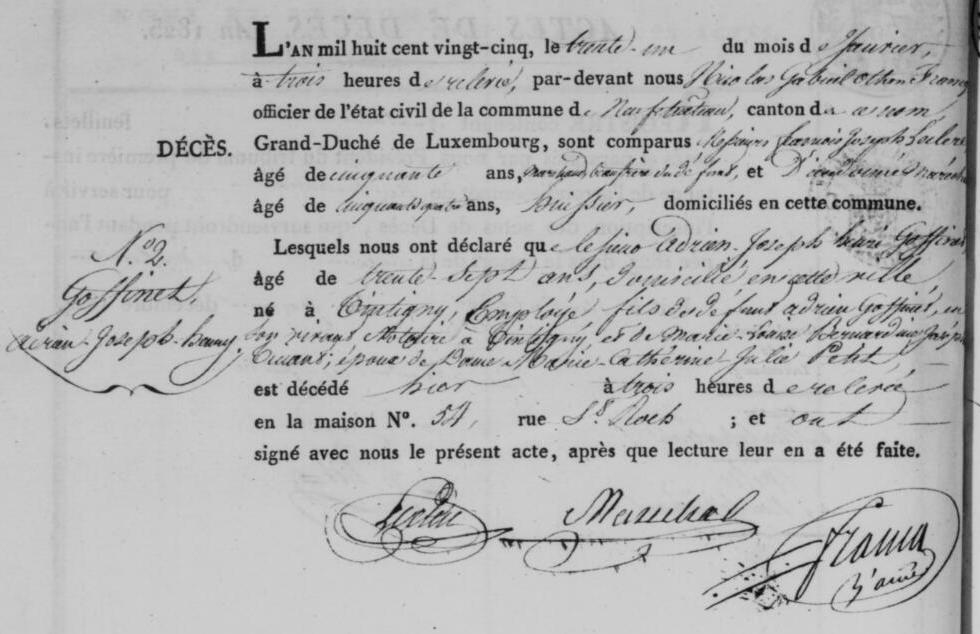 L'AN mil huit cent vingt-cinq, le trente-un du mois de janvier,
à trois heures de relevée, par-devant nous Nicolas Gabriel Othon Frama
officier de l'état civil de la commune de Neufchateau, canton d
DÉCÈS.
Grand-Duché de Luxembourg, sont comparus Messieurs François Joseph Leclerc
âgé de cinquante ans, du défunt, et Maréchal
âgé de cinquante quatre ans, huissier, domiciliés en cette commune.
N.º 2.
Goffinet,
Adrien-Joseph-henry,
Lesquels nous ont déclaré que le sieur Adrien-Joseph henri Goffinet
âgé de trente-sept ans, domicilié en cette ville
né à Tintigny, Employé, fils de défunt adrien Goffinet, en
son vivant Notaire à Tintigny, et de Marie-Louise Bernardine Joseph
; époux de Dame Marie-Catherine Julie Petit,
est décédé hier à trois heures de relevée
en la maison Nº. 54, rue St Roch ; et ont
signé avec nous le présent acte, après que lecture leur en a été faite.
Leclerc Marechal
Frama